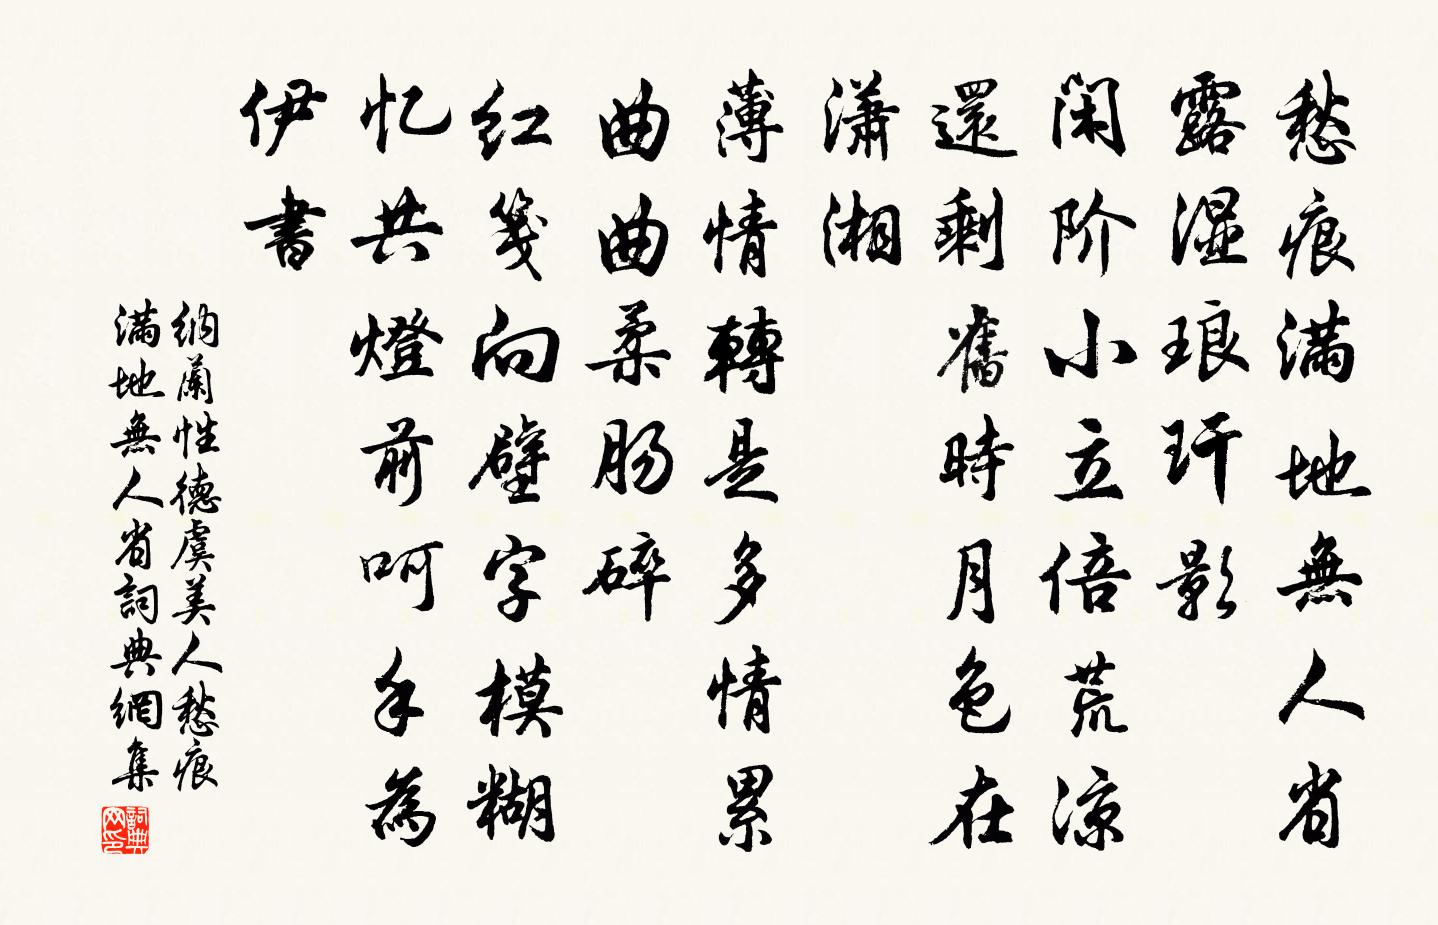 愁痕满地無人省
露湿琅玕影
闲阶小立倍荒凉
還剩舊時月色在
瀟湘
薄情轉是多情累
曲曲柔肠碎
红笺向壁字模糊
忆共燈前呵手為
伊書
纳蘭性德虞美人愁痕
满地無人省詞典網集
詞典
网印